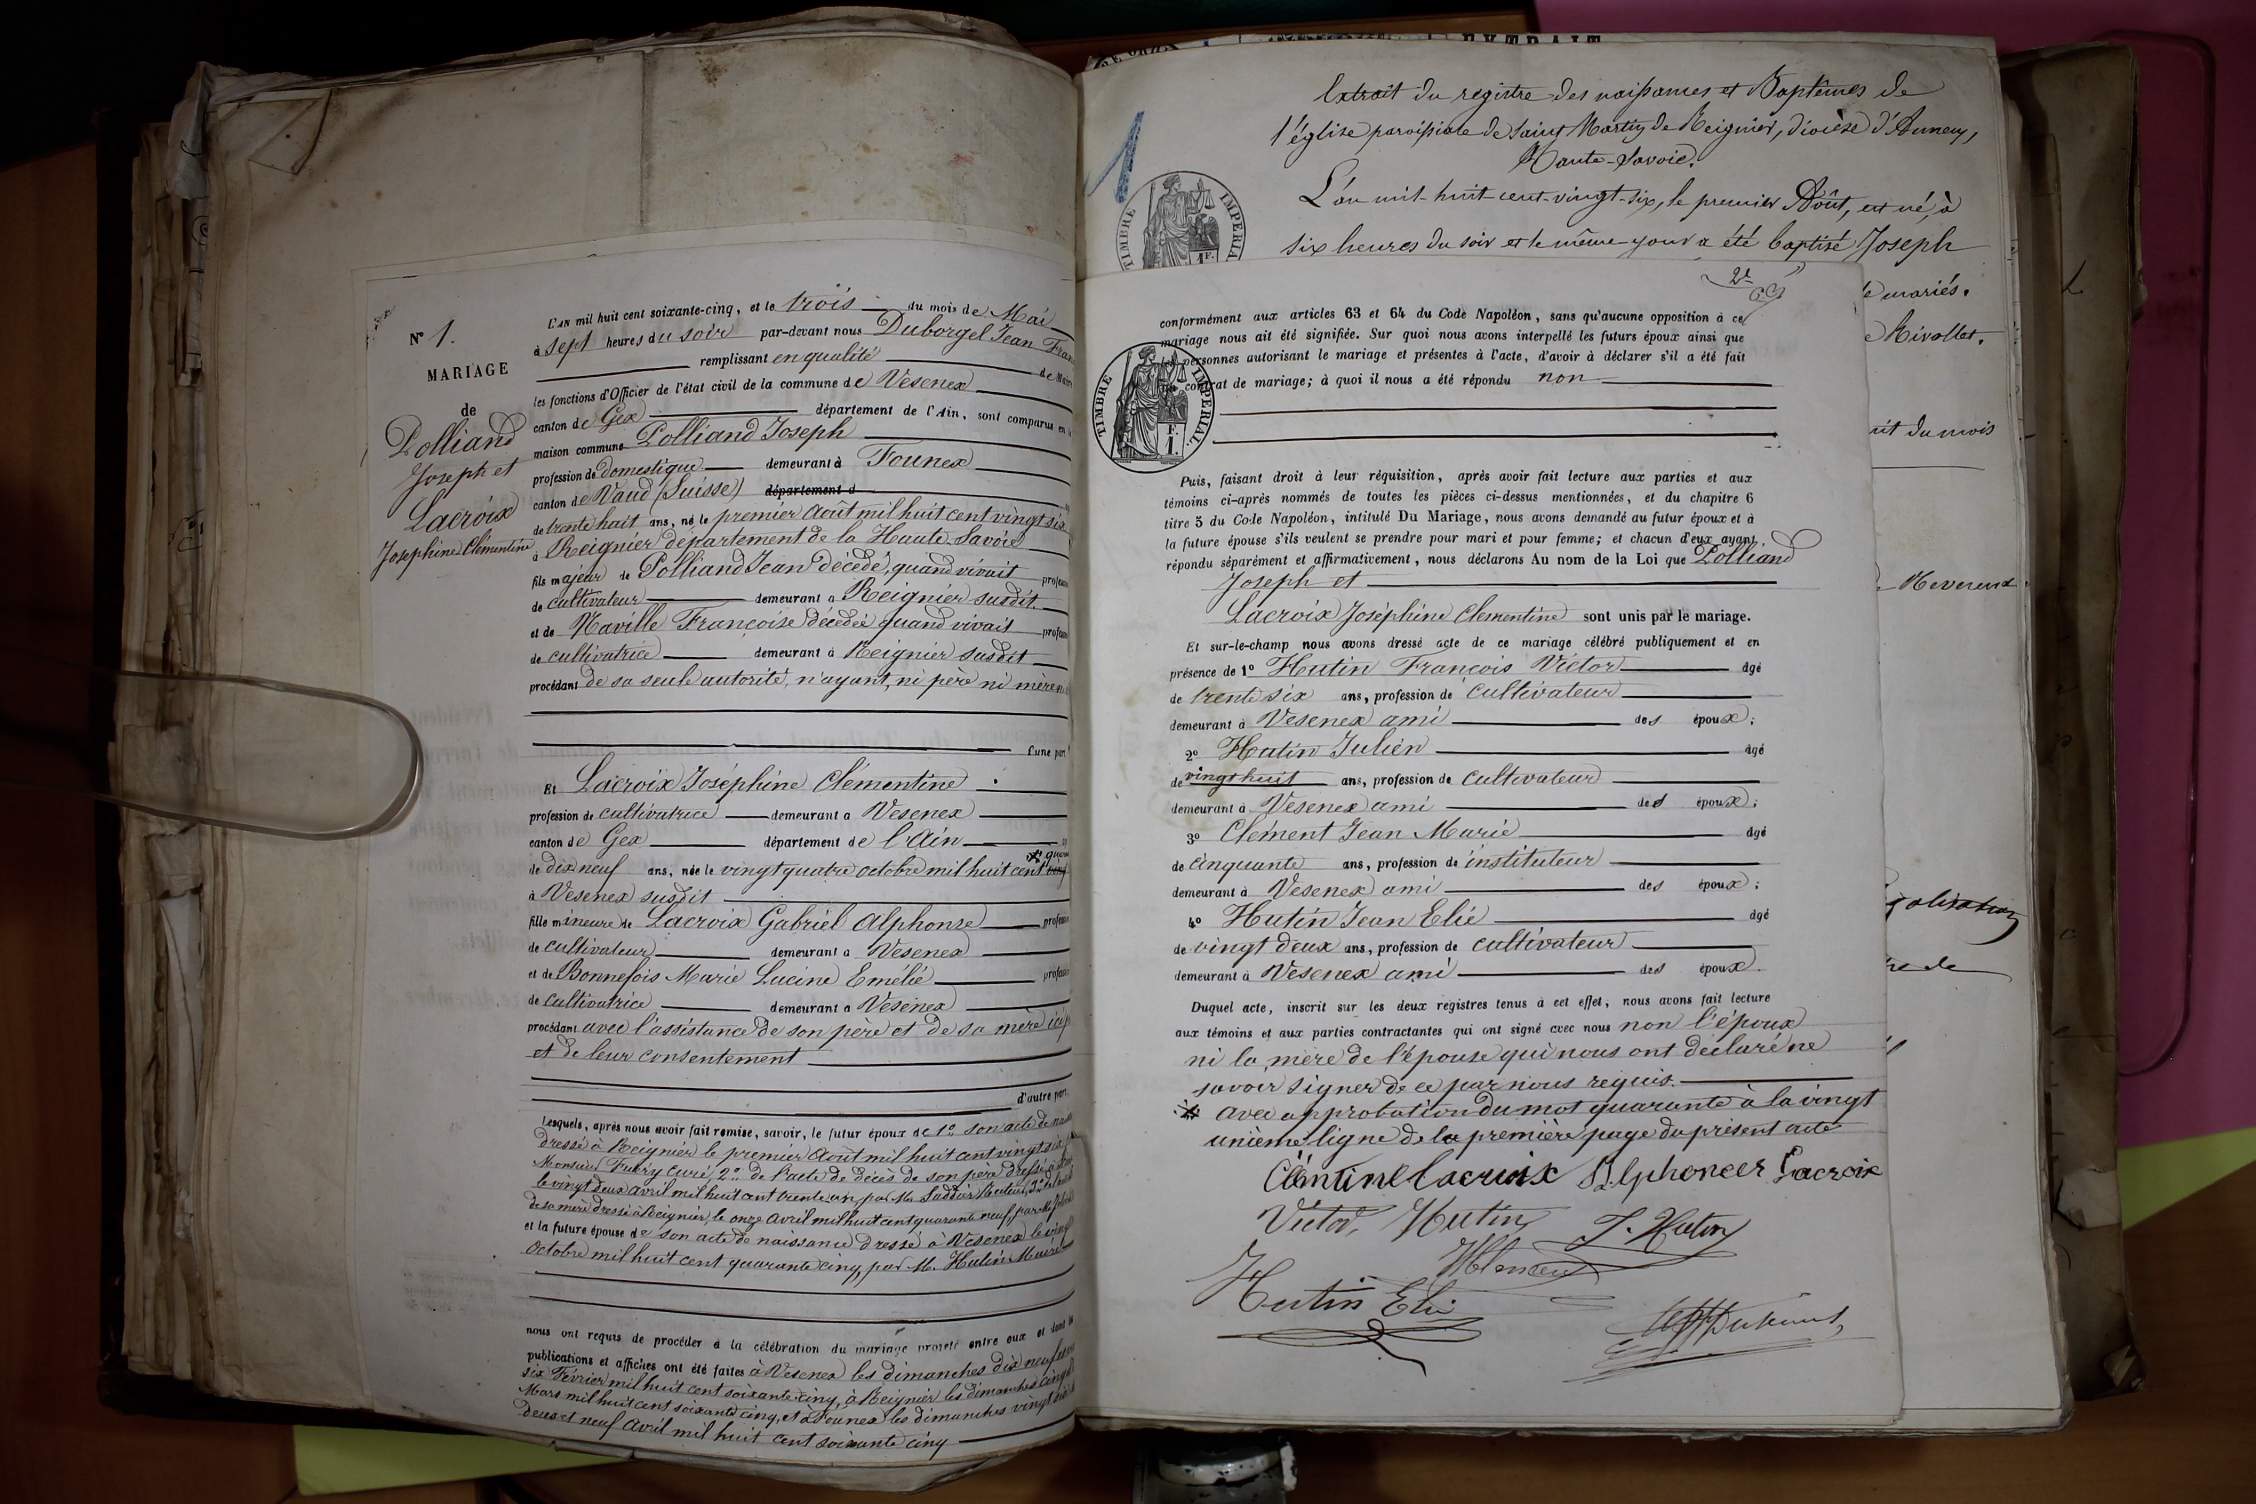 N° 1.
MARIAGE
de
Polliand
Joseph et
Lacroix
Josephine Clémentine
L'AN mil huit cent soixante-cinq, et le trois du mois de Mai
à sept heures du soir par-devant nous Duborgel Jean
remplissant en qualité de Maire
les fonctions d'Officier de l'état civil de la commune de Vesenex
canton de Gex département de l'Ain, sont comparus en
maison commune Polliand Joseph
profession de domestique demeurant à Founex
canton de Vaud (Suisse) département d
de trente huit ans, né le premier Août mil huit cent vingt six
à Reignier département de la Haute Savoie
fils majeur de Polliand Jean décédé, quand vivait
de cultivateur demeurant a Reignier susdit
et de Naville Françoise décédée quand vivait
de cultivatrice demeurant à Reignier susdit
procédant de sa seule autorité, n'ayant, ni père ni mère
d'une part
Et Lacroix Joséphine Clémentine
profession de cultivatrice demeurant a Vesenex
canton de Gex département de l'Ain
de dix neuf ans, née le vingt quatre octobre mil huit cent
à Vesenex susdit
fille mineure de Lacroix Gabriel Alphonse
de cultivateur demeurant a Vesenex
et de Bonnefois Marie Lucine Emélie
de cultivatrice demeurant a Vesenex
procédant avec l'assistance de son père et de sa mère ici
et de leur consentement
d'autre part.
Lesquels, après nous avoir fait remise, savoir, le futur époux de 1° son acte de
dressé à Reignier le premier Août mil huit cent vingt six
Monsieur curé, 2° de l'acte de décès de son père dressé
le vingt deux avril mil huit cent trente un, par M.
de sa mère dressé à Reignier, le onze Avril mil huit cent quarante neuf, par
et la future épouse de son acte de naissance dressé à Vesenex le
Octobre mil huit cent quarante cinq, par M. Hutin Maire
nous ont requis de procéder à la célébration du mariage projeté entre eux et dont les
publications et affiches ont été faites à Vesenex les dimanches dix neuf
six Février mil huit cent soixante cinq, à Reignier les dimanches cinq
Mars mil huit cent soixante cinq, et à Founex les dimanches vingt
deux et neuf Avril mil huit cent soixante cinq
Extrait du registre des naissances et Baptêmes de
l'église paroissiale de Saint Martin de Reignier, diocèse d'Annecy,
Haute-Savoie.
L'an mil-huit-cent-vingt-six, le premier Août, est né, à
six heures du soir et le même jour a été baptisé Joseph
1
TIMBRE IMPERIAL
1F.
mariés.
Rivollet.
du mois
conformément aux articles 63 et 64 du Code Napoléon, sans qu'aucune opposition à ce
mariage nous ait été signifiée. Sur quoi nous avons interpellé les futurs époux ainsi que
les personnes autorisant le mariage et présentes à l'acte, d'avoir à déclarer s'il a été fait
un contrat de mariage; à quoi il nous a été répondu non
TIMBRE IMPERIAL.
F.
1.
Puis, faisant droit à leur réquisition, après avoir fait lecture aux parties et aux
témoins ci-après nommés de toutes les pièces ci-dessus mentionnées, et du chapitre 6
titre 5 du Code Napoléon, intitulé Du Mariage, nous avons demandé au futur époux et à
la future épouse s'ils veulent se prendre pour mari et pour femme; et chacun d'eux ayant
répondu séparément et affirmativement, nous déclarons Au nom de la Loi que Polliand
Joseph et
Lacroix Joséphine Clementine sont unis par le mariage.
Et sur-le-champ nous avons dressé acte de ce mariage célébré publiquement et en
présence de 1° Hutin François Victor âgé
de trente six ans, profession de cultivateur
demeurant à Vesenex ami des époux;
2° Hutin Julien âgé
de vingt huit ans, profession de cultivateur
demeurant à Vesenex ami des époux;
3° Clément Jean Marie âgé
de cinquante ans, profession de instituteur
demeurant à Vesenex ami des époux;
4° Hutin Jean Elie âgé
de vingt deux ans, profession de cultivateur
demeurant à Vesenex ami des époux.
Duquel acte, inscrit sur les deux registres tenus à cet effet, nous avons fait lecture
aux témoins et aux parties contractantes qui ont signé avec nous non l'époux
ni la mère de l'épouse qui nous ont déclaré ne
savoir signer de ce par nous requis.
avec approbation du mot quarante à la vingt
unième ligne de la première page du présent acte
Clémtine Lacroix Alphoncer Lacroix
Victor, Hutin J. Hutin
Hutin Elie